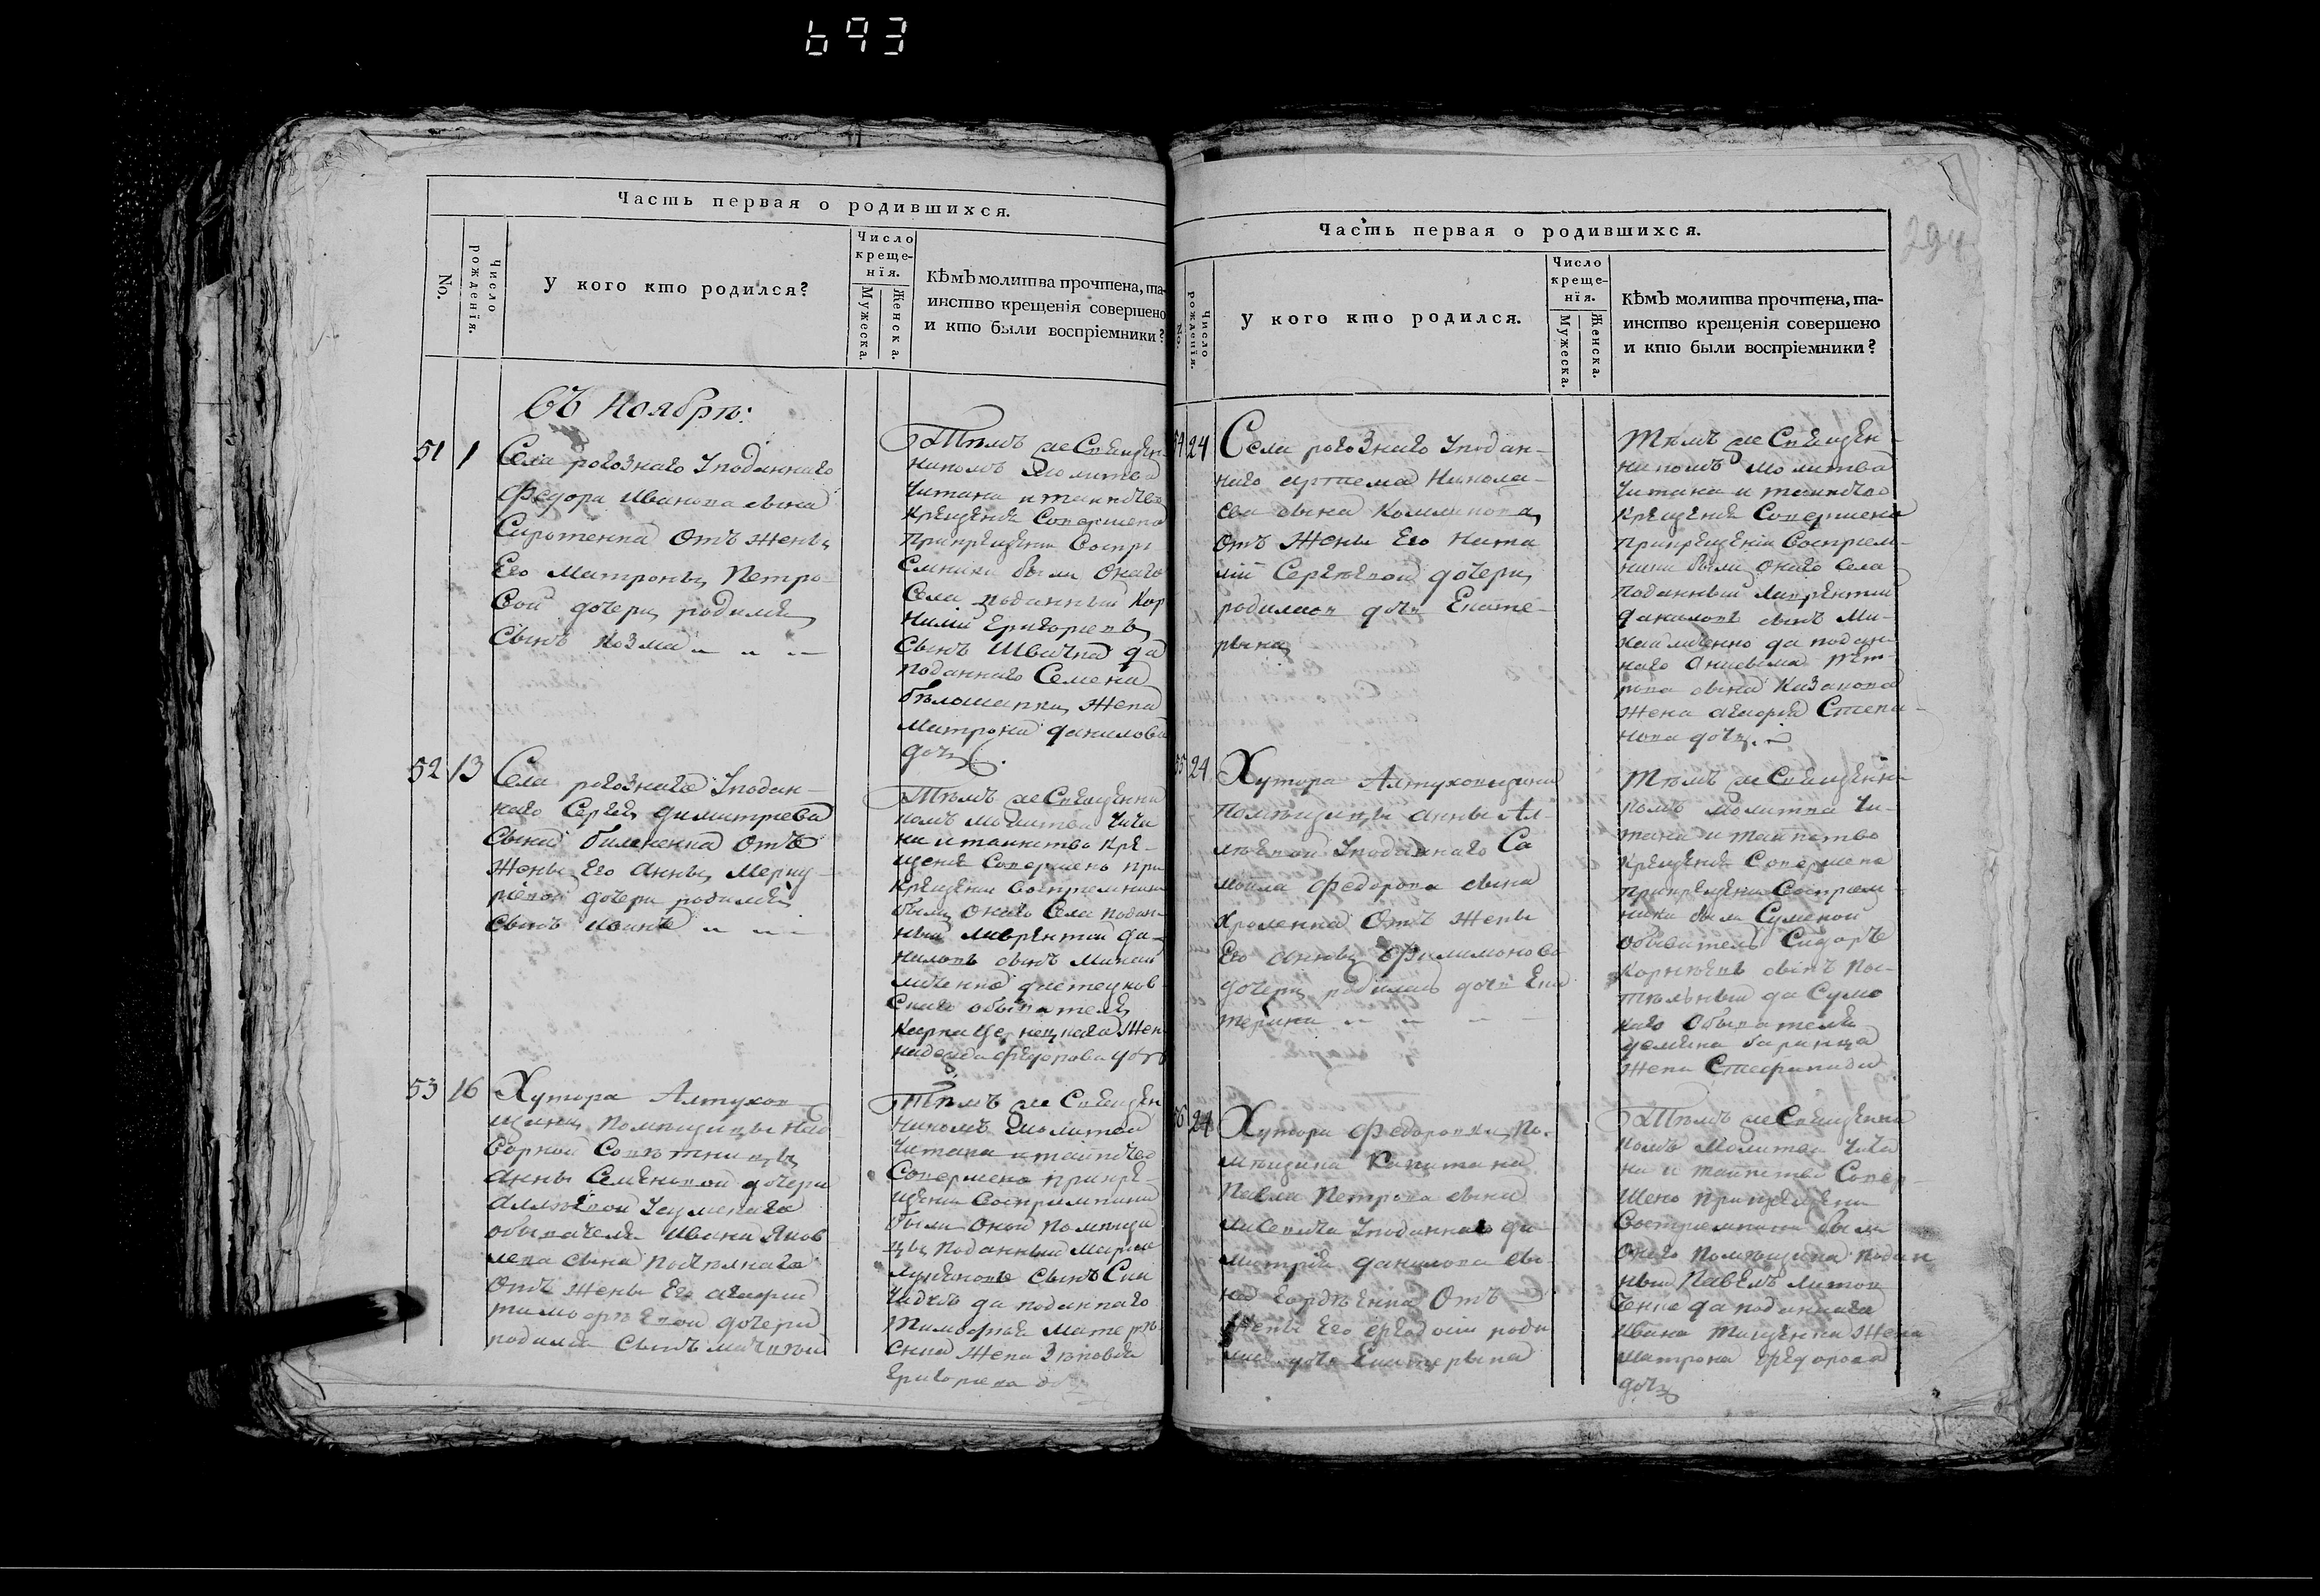 693
Часть первая о родившихся.
No.
Число рожденія.
У кого кто родился?
Число крещенія.
Мужеска.
Женска.
Кѣмъ молитва прочтена, та-
инство крещенія совершено
и кто были воспріемники?
Въ Ноябрѣ:
51 1
Села рогознаго Уподаннаго
Федора Иванова сына
Сиротенка Отъ жены
Его Матроны Петро
вой дочери родился
Сынъ Козма
Тѣмъ же Священ
никомъ молитва
Читана и таинство
Крещенія Совершено
прикрещении Воспрі
емники были Онаго
Села поданный Кор
нилій Григорьевъ
Сынъ Швачка да
поданнаго Семена
бѣлошапки жена
Матрона данилова
дочь
52 13
Села рогознаго Уподан-
наго Сергея димитрева
Сына биленка Отъ
жены Его Анны Мерку
ріевой дочери родился
Сынъ
Тѣмъ же Священни
комъ молитва Чита
на и таинство Кре-
щенія Совершено при
Крещении Воспріемники
были Онаго Села подан
ный Лаврентій да-
ниловъ сынъ Михай
личенко
обывателя
Карпа жен
надежда федорова дочь
53 16
Хутора Алтухов
щины помѣщицы Над
ворной Совѣтницы
Анны Семеновой дочери
Усумскаго
обывателя Ивана Яков
лева сына
Отъ жены Его агафіи
тимофѣевой дочери
родился Сынъ матвѣй
Тѣмъ же Священ
никомъ молитва
Читана и таинство
Совершено прикре-
щении Воспріемники
были Оной помѣщи
цы поданный
сынъ
да поданнаго
Тимофея
жена Зѣновія
Григорьева дочь
294
Часть первая о родившихся.
No.
Число рожденія.
У кого кто родился.
Число крещенія.
Мужеска.
Женска.
Кѣмъ молитва прочтена, та-
инство крещенія совершено
и кто были воспріемники?
54 24
Села рогознаго Уподан-
наго артема Никола-
ева сына
Отъ жены Его Ната
ліи Сергѣевой дочери
родилась дочь Екате-
рына
Тѣмъ же Священ-
никомъ молитва
Читана и таинство
Крещенія Совершено
прикрещеніи Воспріем-
ники были Онаго Села
поданный Лаврентій
даниловъ сынъ Ми-
хайличенко да подан-
наго Пет-
рова сына Казакова
жена агафія Степа-
нова дочь.
55 24
Хутора Алтуховщины
помѣщицы Анны Ал-
Уподаннаго Са
мойла Федорова сына
Хроленка Отъ жены
Его Филимоново
дочери родилась дочь Ека
терина
Тѣмъ же Священни
комъ молитва Чи-
тана и таинство
Крещенія Совершено
прикрещении Воспріем-
ники были Сумской
обыватель Сидоръ
Корнѣевъ сынъ
да Сумс
каго Обывателя
жена Стефанида
56 24
Хутора Федоровки по-
мѣщика Капитана
Павла Петрова сына
Уподаннаго ди
митрія данилова сы-
на Гордѣенка Отъ
жены Его роди
лась дочь Екатерына
Тѣмъ же Священни
комъ молитва Чита
на и таинство Совер-
шено
Воспріемники были
Онаго помѣщика подан
ный Павелъ Литов
ченко да поданнаго
Ивана Тищенка жена
Матрона Федорова
дочь